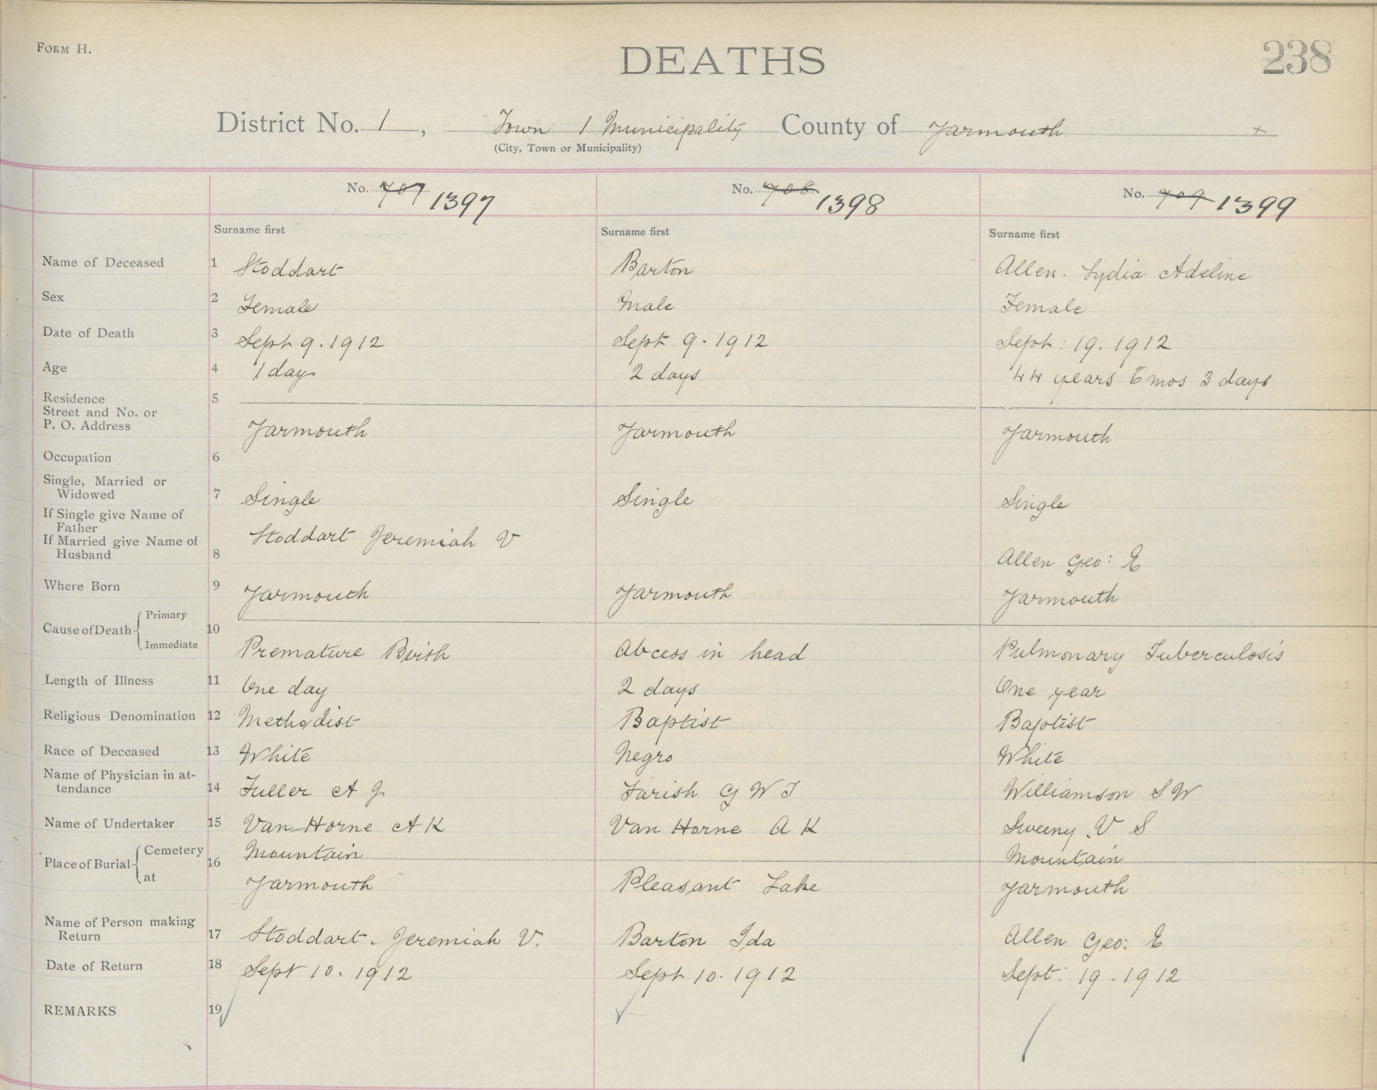 FORM H.
DEATHS
238
District No. 1, Town 1 Municipality County of Yarmouth x
(City, Town or Municipality)
No. 707 1397 No. 708 1398 No. 709 1399
Surname first Surname first Surname first
Name of Deceased 1 Stoddart Barton Allen. Lydia Adeline
Sex 2 Female Male Female
Date of Death 3 Sept 9. 1912 Sept 9. 1912 Sept: 19. 1912
Age 4 1 day 2 days 44 years 6 mos 3 days
Residence 5
Street and No. or
P. O. Address Yarmouth Yarmouth Yarmouth
Occupation 6
Single, Married or
Widowed 7 Single Single Single
If Single give Name of
Father
If Married give Name of Stoddart Jeremiah V
Husband 8 Allen Geo: E
Where Born 9 Yarmouth Yarmouth Yarmouth
Cause of Death Primary 10
Immediate Premature Birth Abcess in head Pulmonary Tuberculosis
Length of Illness 11 One day 2 days One year
Religious Denomination 12 Methodist Baptist Baptist
Race of Deceased 13 White Negro White
Name of Physician in at-
tendance 14 Fuller A J Farish G W T Williamson S W
Name of Undertaker 15 Van Horne A K Van Horne A K Sweeny V S
Place of Burial Cemetery 16 Mountain Mountain
at Yarmouth Pleasant Lake Yarmouth
Name of Person making
Return 17 Stoddart. Jeremiah V. Barton Ida Allen Geo: E
Date of Return 18 Sept 10. 1912 Sept 10. 1912 Sept: 19. 1912
REMARKS 19